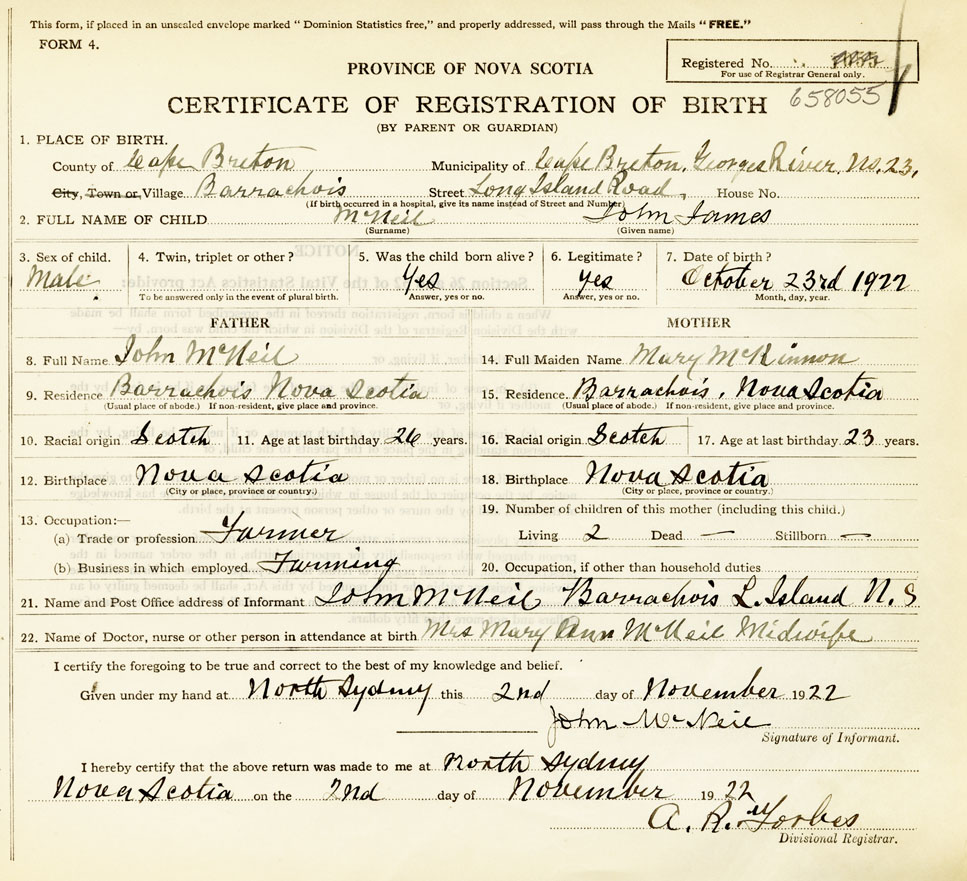 This form, if placed in an unsealed envelope marked "Dominion Statistics free," and properly addressed, will pass through the Mails "FREE."
FORM 4.
Registered No.
For use of Registrar General only.
PROVINCE OF NOVA SCOTIA
658055
CERTIFICATE OF REGISTRATION OF BIRTH
(BY PARENT OR GUARDIAN)
1. PLACE OF BIRTH.
County of Cape Breton Municipality of Cape Breton, Georges River. No. 23.
City, Town or Village Barrachois Street Long Island Road, House No.
(If birth occurred in a hospital, give its name instead of Street and Number)
2. FULL NAME OF CHILD McNeil John James
(Surname) (Given name)
3. Sex of child. 4. Twin, triplet or other? 5. Was the child born alive? 6. Legitimate? 7. Date of birth?
Male Yes Yes October 23rd 1922
To be answered only in the event of plural birth. Answer, yes or no. Answer, yes or no. Month, day, year.
FATHER MOTHER
8. Full Name John McNeil 14. Full Maiden Name Mary McKinnon
9. Residence Barrachois Nova Scotia 15. Residence Barrachois, Nova Scotia
(Usual place of abode.) If non-resident, give place and province. (Usual place of abode.) If non-resident, give place and province.
10. Racial origin Scotch 11. Age at last birthday 26 years. 16. Racial origin Scotch 17. Age at last birthday 23 years.
12. Birthplace Nova Scotia 18. Birthplace Nova Scotia
(City or place, province or country.) (City or place, province or country.)
13. Occupation:— 19. Number of children of this mother (including this child.)
(a) Trade or profession Farmer Living 2 Dead — Stillborn —
(b) Business in which employed Farming 20. Occupation, if other than household duties
21. Name and Post Office address of Informant John McNeil Barrachois L. Island N. S
22. Name of Doctor, nurse or other person in attendance at birth Mrs Mary Ann McNeil Midwife
I certify the foregoing to be true and correct to the best of my knowledge and belief.
Given under my hand at North Sydney this 2nd day of November 1922
John McNeil
Signature of Informant.
I hereby certify that the above return was made to me at North Sydney
Nova Scotia on the 2nd day of November 1922
A. R. Forbes
Divisional Registrar.